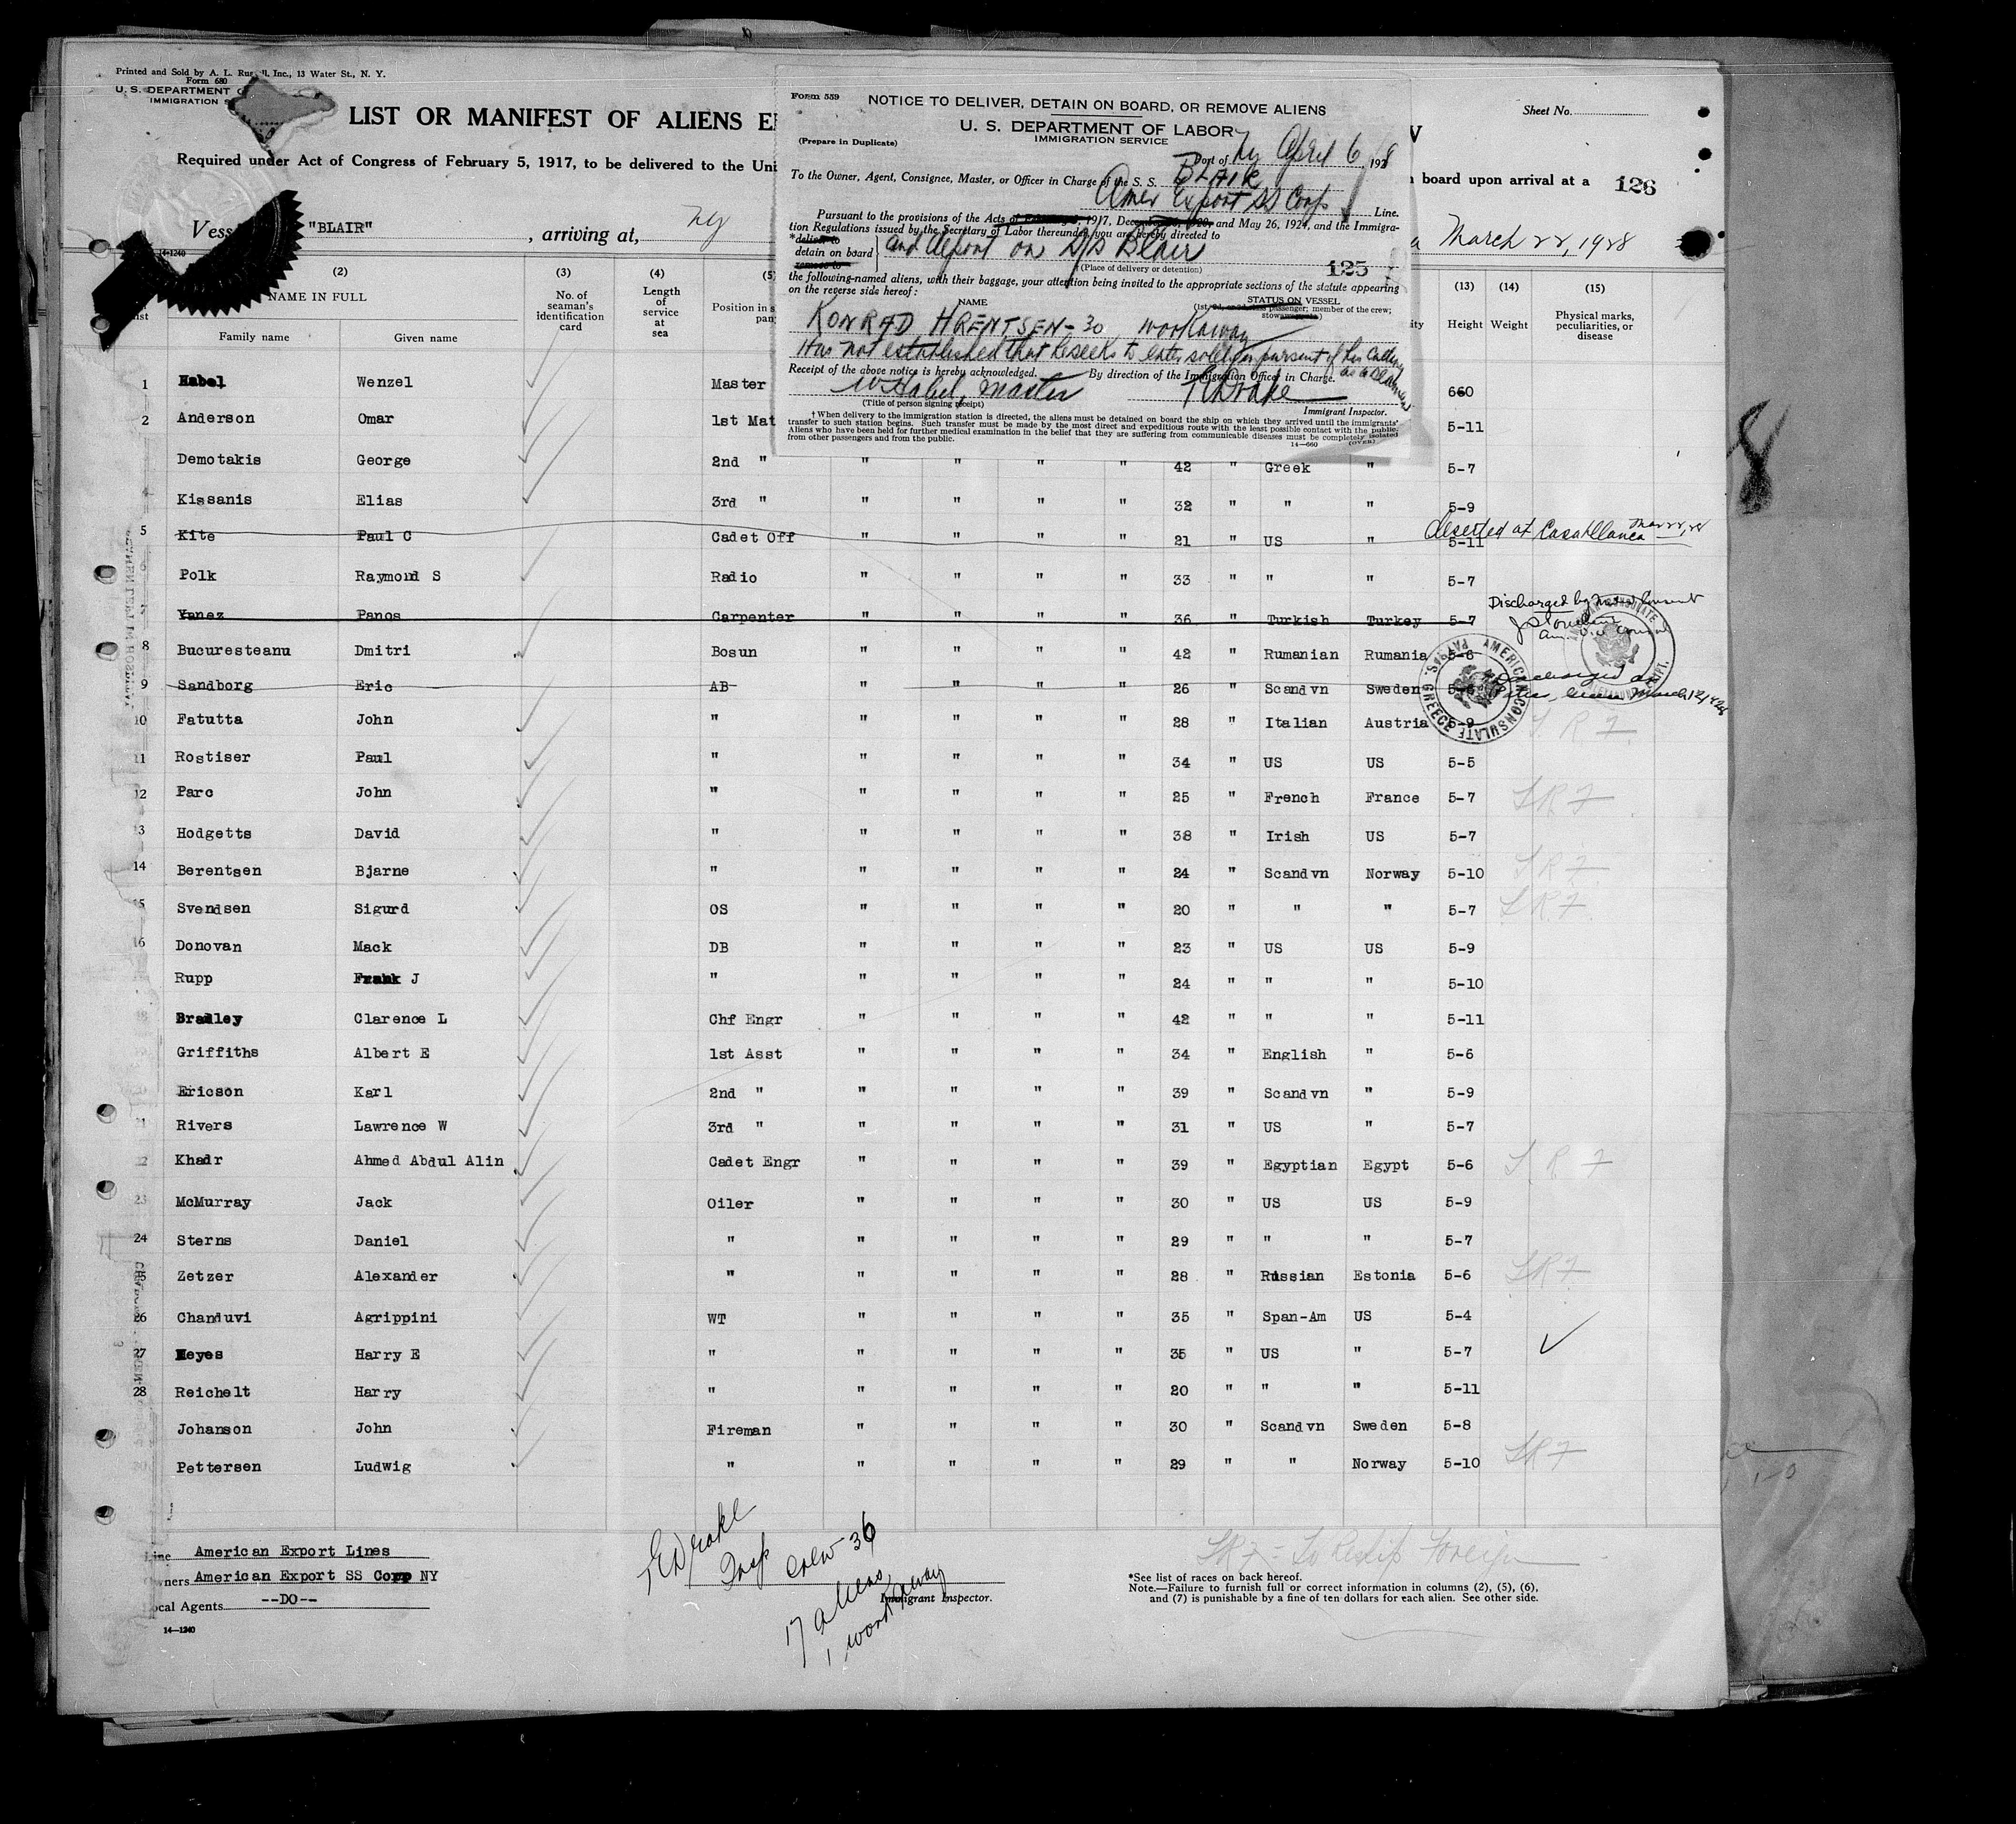 Printed and Sold by A. L. Russell, Inc., 13 Water St., N. Y.
Form 680
U. S. DEPARTMENT
IMMIGRATION
LIST OR MANIFEST OF ALIENS
Required under Act of Congress of February 5, 1917, to be delivered to the
Sheet No.
board upon arrival at a
126
"BLAIR" , arriving at, Ny
March 22, 1928
14-1240
Form 559
NOTICE TO DELIVER, DETAIN ON BOARD, OR REMOVE ALIENS
U. S. DEPARTMENT OF LABOR
IMMIGRATION SERVICE
(Prepare in Duplicate)
Port of Ny April 6, 1928
To the Owner, Agent, Consignee, Master, or Officer in Charge of the S. S. BLAIR
Amer Export SS Corp Line.
Pursuant to the provisions of the Acts of 1917, and May 26, 1924, and the Immigra-
tion Regulations issued by the Secretary of Labor thereunder, you are hereby directed to
*deliver to
detain on board
remove to
and deport on S/S Blair
† (Place of delivery or detention)
125
the following-named aliens, with their baggage, your attention being invited to the appropriate sections of the statute appearing
on the reverse side hereof:
NAME
STATUS ON VESSEL
(1st, 2d, and 3d class passenger; member of the crew;
stowaway, etc.)
KONRAD HRENTSEN - 30 workaway
Has not established that he seeks to enter solely in pursuit of his calling
as a seaman
Receipt of the above notice is hereby acknowledged. By direction of the Immigration Officer in Charge.
W Habel, Master RDrake
(Title of person signing receipt) Immigrant Inspector.
† When delivery to the immigration station is directed, the aliens must be detained on board the ship on which they arrived until the immigrants'
transfer to such station begins. Such transfer must be made by the most direct and expeditious route with the least possible contact with the public.
Aliens who have been held for further medical examination in the belief that they are suffering from communicable diseases must be completely isolated
from other passengers and from the public.
14-660 (OVER)
(2) (3) (4) (13) (14) (15)
NAME IN FULL
No. of seaman's identification card
Length of service at sea
Height Weight Physical marks, peculiarities, or disease
Family name Given name
1 Habel Wenzel Master 660
2 Anderson Omar 1st Mat 5-11
Demotakis George 2nd " " " " " 42 " Greek " 5-7
4 Kissanis Elias 3rd " " " " " 32 " " " 5-9
5 Kite Paul C Cadet Off " " " " 21 " US " 5-11 deserted at Casablanca
Polk Raymond S Radio " " " " 33 " " " 5-7
Yanez Panos Carpenter " " " " 36 " Turkish Turkey 5-7 Discharged by
8 Bucuresteanu Dmitri Bosun " " " " 42 " Rumanian Rumania 5-6
9 Sandborg Eric AB " " " " 26 " Scandvn Sweden 5-6 Discharged at
AMERICAN CONSULATE PATRAS, GREECE
10 Fatutta John " " " " " 28 " Italian Austria 5-9 S R F
11 Rostiser Paul " " " " " 34 " US US 5-5
12 Parc John " " " " " 25 " French France 5-7 S R F
13 Hodgetts David " " " " " 38 " Irish US 5-7
14 Berentsen Bjarne " " " " " 24 " Scandvn Norway 5-10 S R F
15 Svendsen Sigurd OS " " " " 20 " " " 5-7 S R F
16 Donovan Mack DB " " " " 23 " US US 5-9
Rupp Frank J " " " " " 24 " " " 5-10
18 Bradley Clarence L Chf Engr " " " " 42 " " " 5-11
Griffiths Albert E 1st Asst " " " " 34 " English " 5-6
Ericson Karl 2nd " " " " " 39 " Scandvn " 5-9
21 Rivers Lawrence W 3rd " " " " " 31 " US " 5-7
22 Khadr Ahmed Abdul Alin Cadet Engr " " " " 39 " Egyptian Egypt 5-6 S R F
23 McMurray Jack Oiler " " " " 30 " US US 5-9
24 Sterns Daniel " " " " " 29 " " " 5-7
25 Zetzer Alexander " " " " " 28 " Russian Estonia 5-6 S R F
26 Chanduvi Agrippini WT " " " " 35 " Span-Am US 5-4
27 Heyes Harry E " " " " " 35 " US " 5-7
28 Reichelt Harry " " " " " 20 " " " 5-11
Johanson John Fireman " " " " 30 " Scandvn Sweden 5-8
Pettersen Ludwig " " " " " 29 " " Norway 5-10 S R F
RDrake
Insp Crew - 36
17 aliens
1 workaway
Immigrant Inspector.
Line American Export Lines
Owners American Export SS Corp NY
Local Agents --DO--
14-1240
SRF = To Reship Foreign
*See list of races on back hereof.
Note.—Failure to furnish full or correct information in columns (2), (5), (6),
and (7) is punishable by a fine of ten dollars for each alien. See other side.